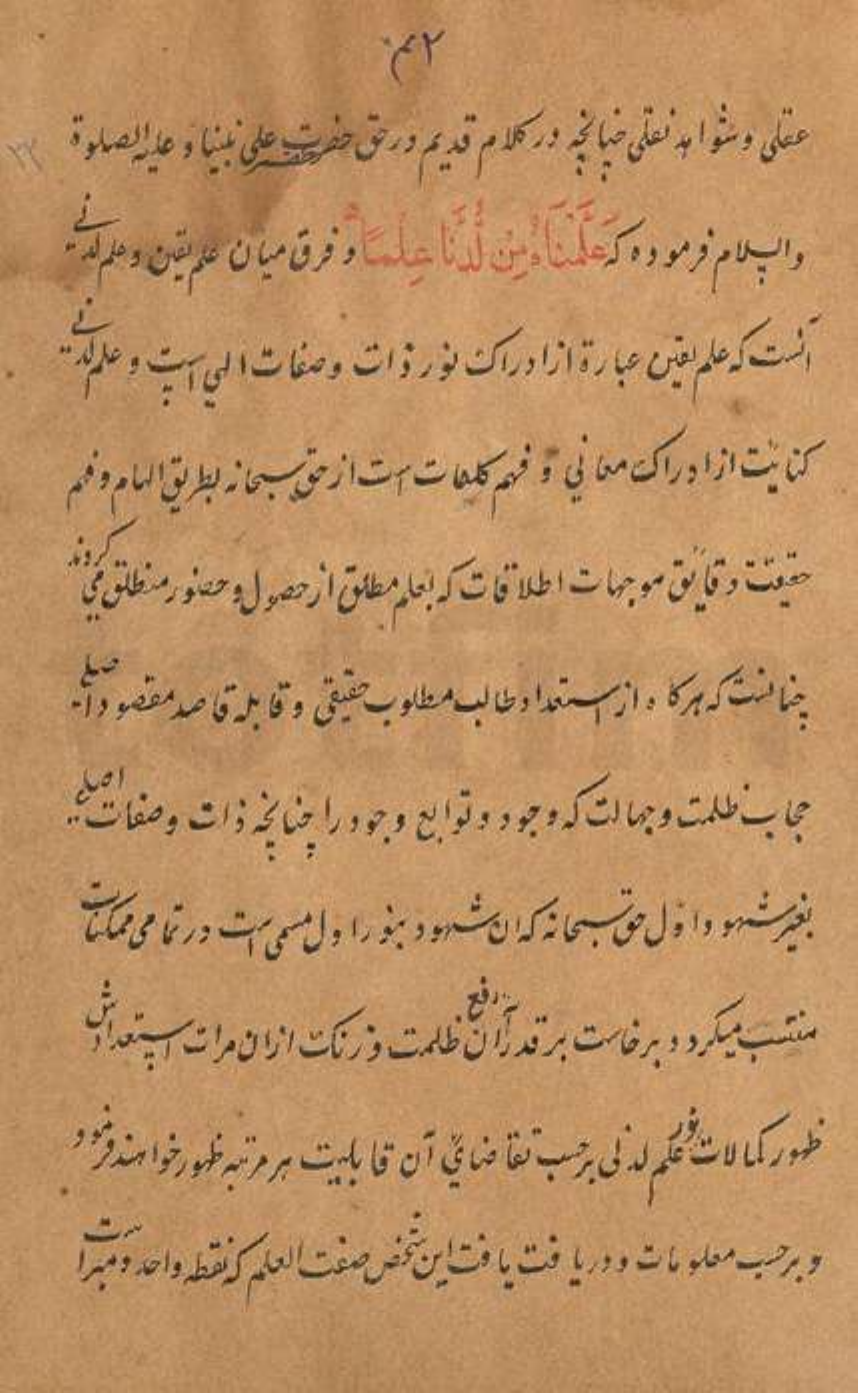 ۴۲
عقلی و شواهد نقلی چنانچه در کلام قدیم در حق حضرت خضر علی نبینا و علیه الصلوة
والسلام فرموده که عَلَّمْنَاهُ مِن لَّدُنَّا عِلْمًا و فرق میان علم یقین و علم لدنی
آنست که علم یقین عبارة از ادراک نور ذات و صفات الهی است و علم لدنی
کنایت از ادراک معانی و فهم کلمات است از حق سبحانه بطریق الهام و فهم
حقیقت دقایق موجهات اطلاقات که بعلم مطلق از حصول و حضور منطلق می کردند
چنانست که هرکاه از استعداد طالب مطلوب حقیقی و قابله قاصد مقصود اصلی
حجاب ظلمت و جهالت که وجود و توابع وجود را چنانچه ذات و صفات اصلی
بغیر شهود اول حق سبحانه که ان شهود بنور اول مسمی است در تمامی ممکنات
منتسب میکردد برخاست بر قدر رفع آن ظلمت و زنک ازان مرات استعدادش
ظهور کمالات نور علم لدنی برحسب تقاضای آن قابلیت هر مرتبه ظهور خواهند فرمود
و برحسب معلومات و دریافت یافت این شخص صفت العلم که نقطه واحد و مبراست